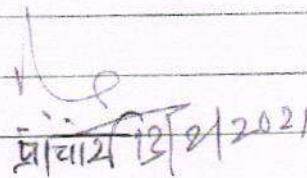 प्राचार्य 13/2/2021